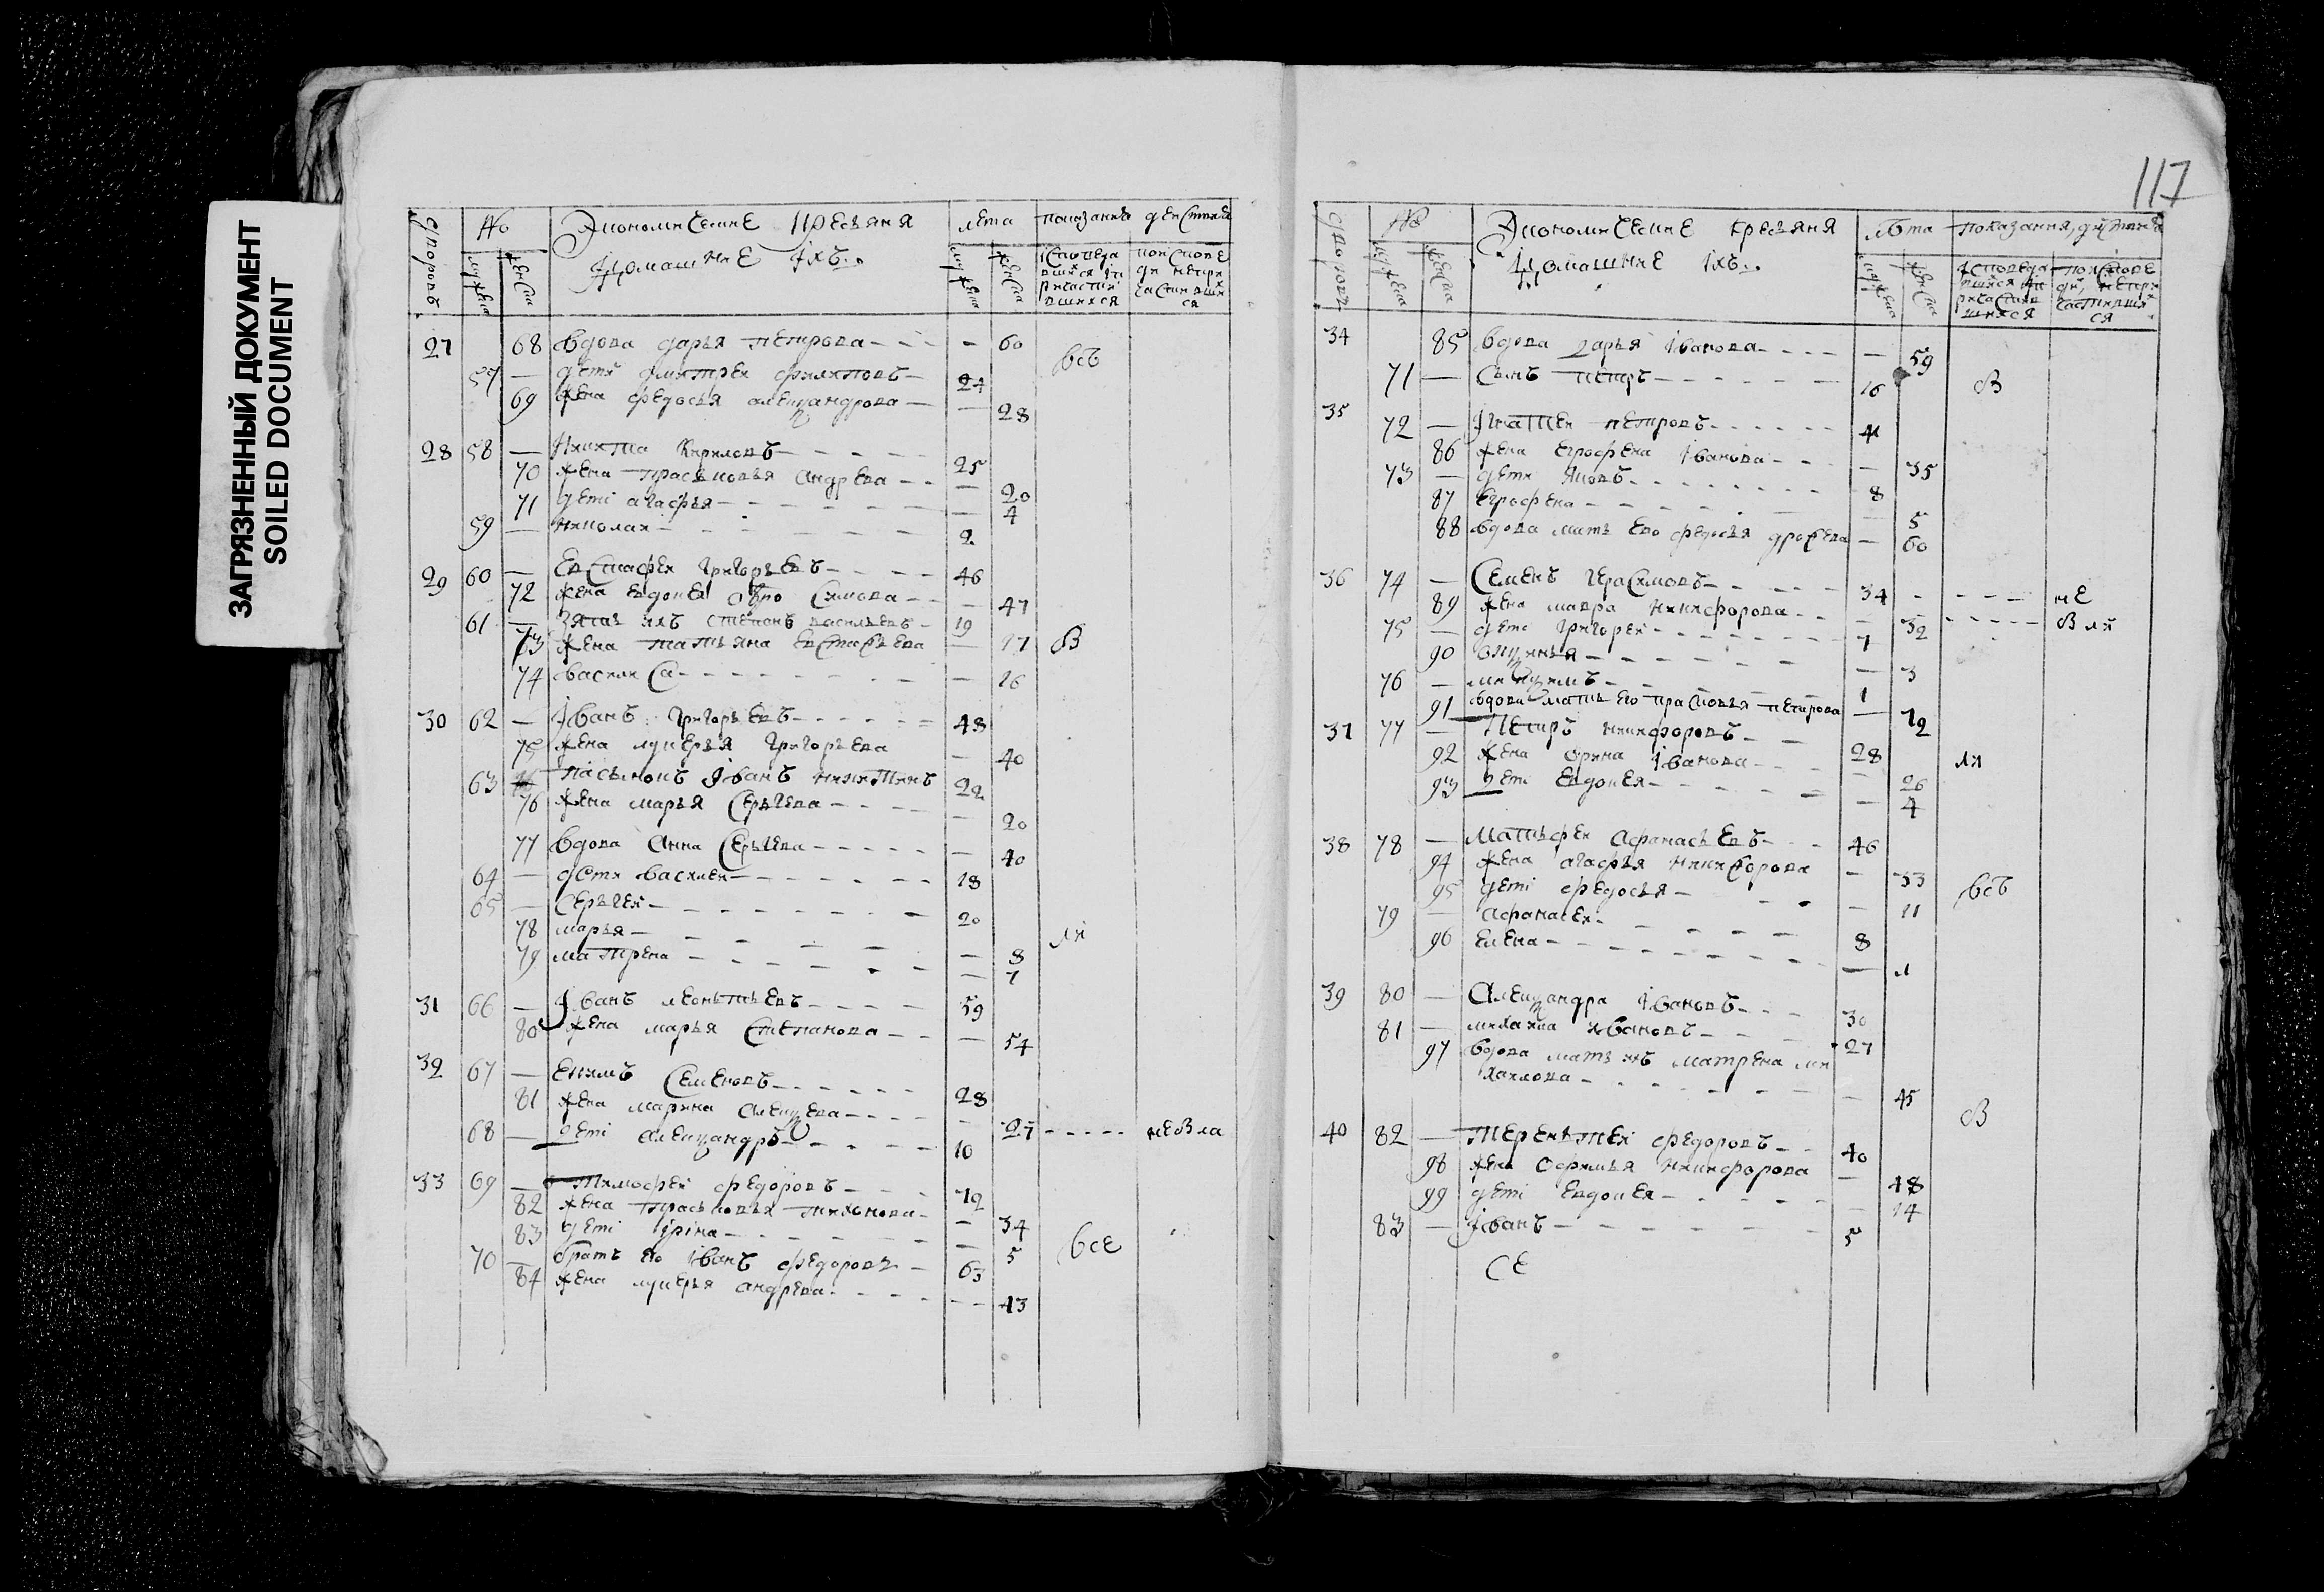 ЗАГРЯЗНЕННЫЙ ДОКУМЕНТ
SOILED DOCUMENT
дворовъ № Экономические кресьяня лета показание действа
мужска женска Идомашние iхъ мужска женска
27 68 вдова дарья петрова - 60 всъ
57 — дети дмитрей филиповъ 24
69 жена федосья александрова — 28
28 58 — никита кириловъ 25
70 жена праськовья андрева — 20
71 детi агафья — 4
59 — николаи 2
29 60 — Евстафеи григорьевъ 46
72 жена евдокея — 47
61 — зять ихъ степанъ васильевъ 19
73 жена татьяна евстафьева — 17 В
74 василиса — 16
30 62 — Iванъ григорьевъ 43
75 жена лукерья григорьева — 40
63 пасынокъ Iванъ никитинъ 22
76 жена марья сергева — 20
77 вдова анна сергева — 40
64 — дети василеи 18
65 — сергеи 20
78 марья — 8 ли
79 матрена — 7
31 66 — Iванъ леонтьевъ 59
80 жена марья степанова — 54
32 67 — екимъ семеновъ 28
81 жена марина алексева — 27 небла
68 — детi александръ 10
33 69 — тимофеи федоровъ 12
82 жена праськовья тихонова — 34
83 детi iрiна — 5 все
70 — братъ ево iванъ федоровъ 63
84 жена лукерья андрева — 43
117
дворовъ № Экономические кресьяня лѣта показания, действа
мужска женска Идомашние iхъ мужска женска
34 85 вдова дарья iванова — 59
71 — сынъ петръ 16 В
35 72 — Iгнатеи петровъ 41
86 жена егрофена iванова — 35
73 — дети яковъ 8
87 егрофена — 5
88 вдова мать ево федосья — 60
36 74 — Семенъ герасимовъ 34 не
89 жена мавра никифорова — 32 Вли
75 — детi григореи 7
90 — 3
76 — 1
91 вдова мать его прасковья петрова — 72
37 77 — петръ никифоровъ 28
92 жена орина iванова — 26 ли
93 детi евдокея — 4
38 78 — матьфеи афанасьевъ 46
94 жена агафья никифорова — 33 всъ
95 детi федосья — 11
79 — афанасеи 8
96 елена — 1
39 80 — александра iвановъ 30
81 — михаила ивановъ 27
97 вдова мать ихъ матрена ми
хаилова — 45
40 82 — терентеи федоровъ 40 В
98 жена офимья никифорова — 48
99 детi евдокея — 14
83 — iванъ 5
се